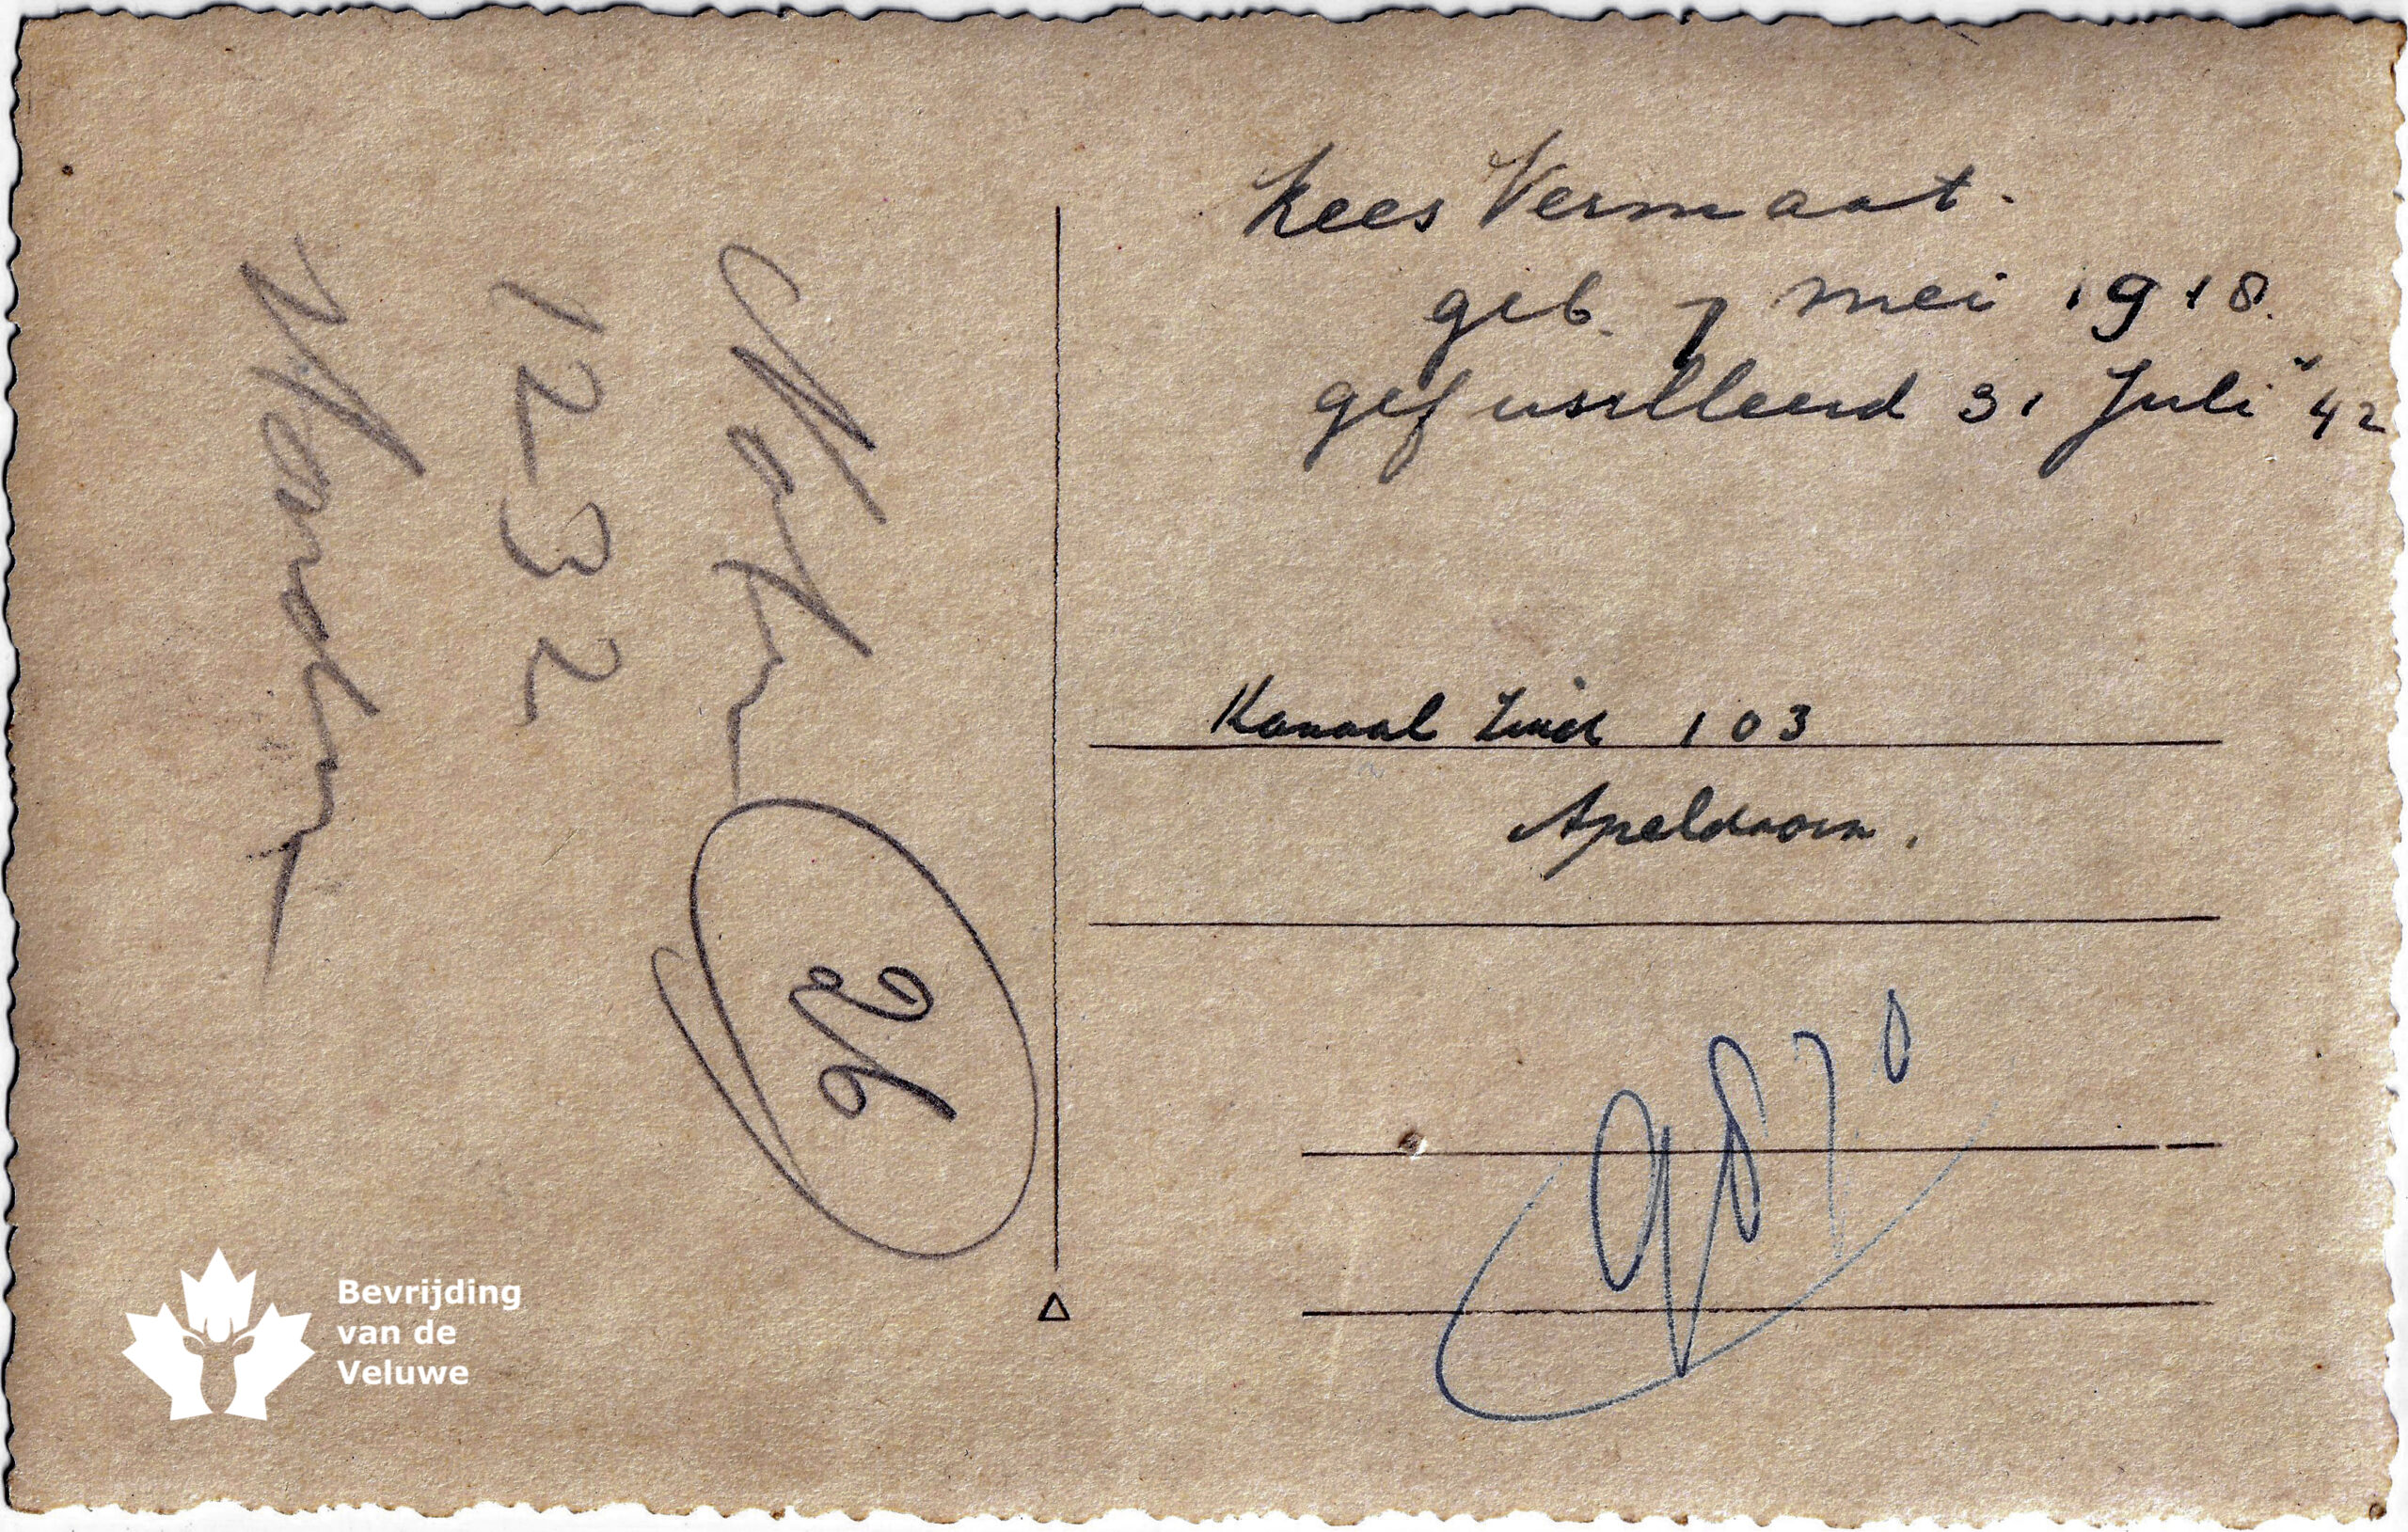 Kees Vermaat.
geb. 7 mei 1918.
gefusilleerd 31 Juli "42
Kanaal Zuid 103
Apeldoorn.
9870
1232
26
Bevrijding
van de
Veluwe